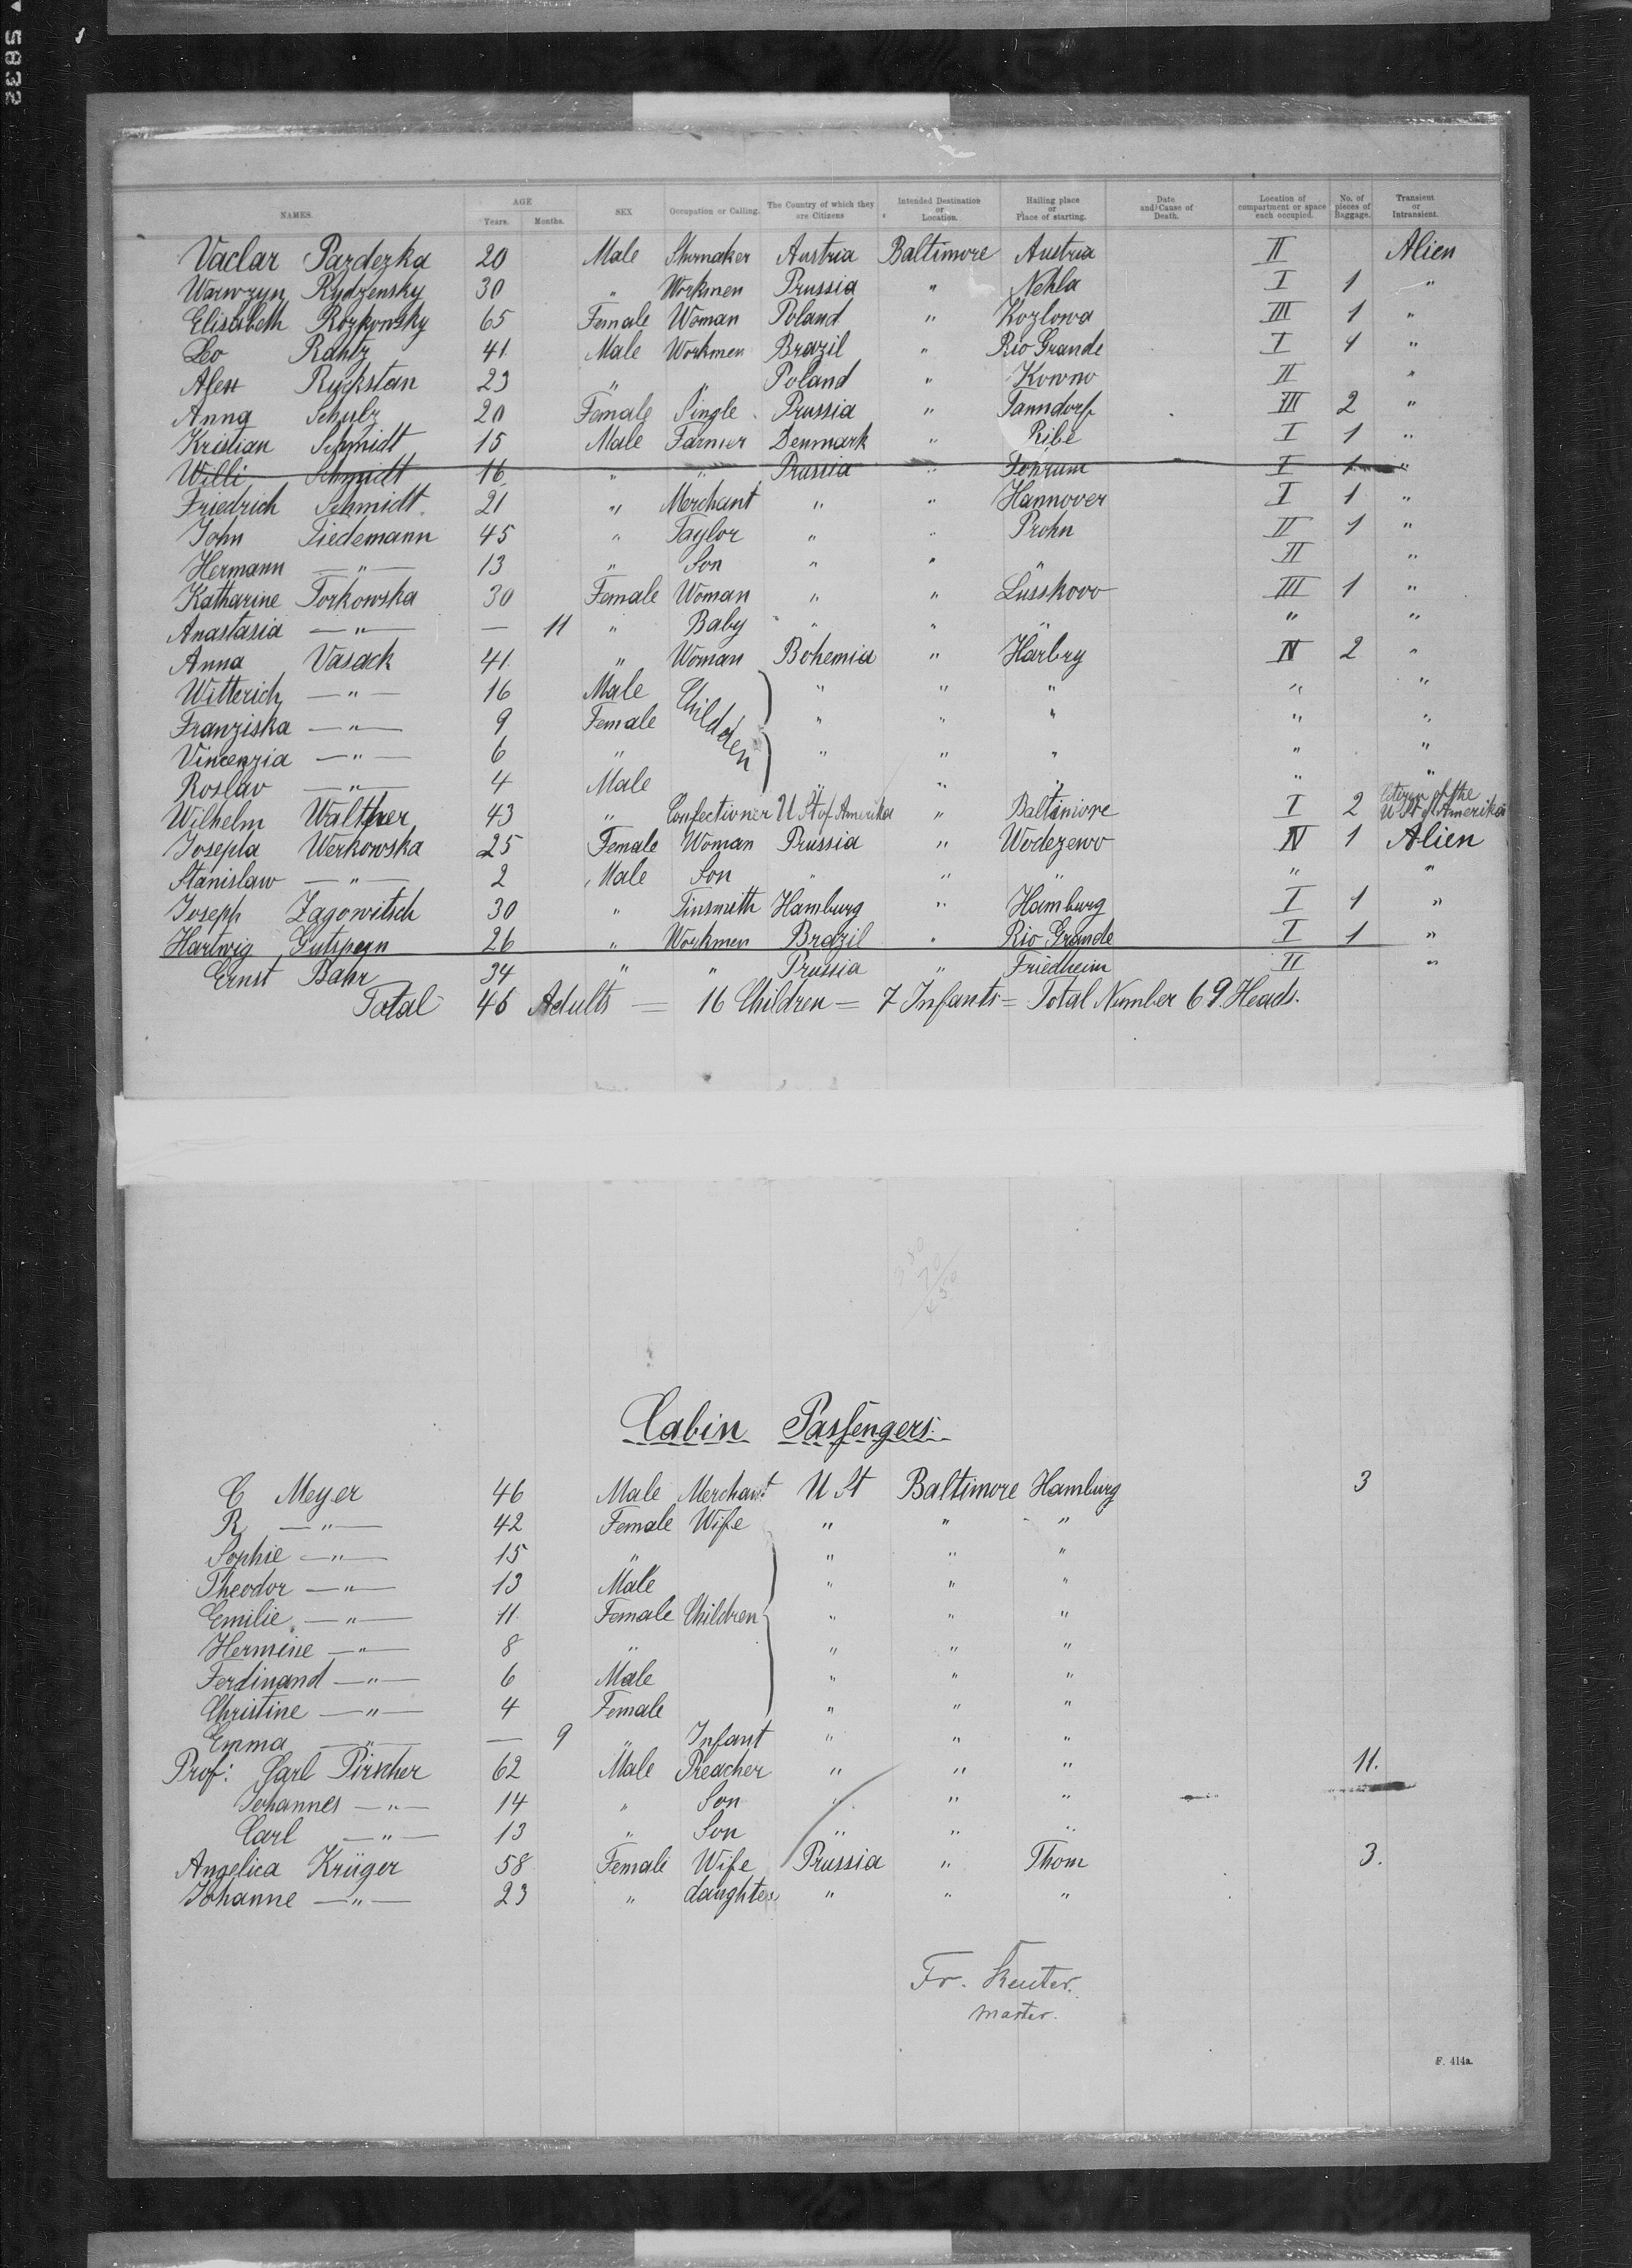 5832
NAMES. AGE Years. Months. SEX Occupation or Calling. The Country of which they are Citizens Intended Destination or Location. Hailing place or Place of starting. Date and Cause of Death. Location of compartment or space each occupied. No. of pieces of Baggage. Transient or Intransient.
Vaclar Pazdezka 20 Male Shomaker Austria Baltimore Austria II Alien
Wawrzyn Rydzensky 30 " Workmen Prussia " Nehla I 1 "
Elisabeth Rozkowsky 65 Female Woman Poland " Kozlowa III 1 "
Leo Rantz 41 Male Workmen Brazil " Rio Grande I 1 "
Alex Ruckstan 23 " " Poland " Kowno II "
Anna Schulz 20 Female Single Prussia " Tanndorf III 2 "
Kristian Schmidt 15 Male Farmer Denmark " Ribe I 1 "
Willi Schmidt 16 " " Prussia " Fohrum I 1 "
Friedrich Schmidt 21 " Merchant " " Hannover I 1 "
John Tiedemann 45 " Taylor " " Prohn II 1 "
Hermann — " — 13 " Son " " " II "
Katharine Torkowska 30 Female Woman " " Lusskovo III 1 "
Anastasia — " — — 11 " Baby " " " " "
Anna Vasack 41 " Woman Bohemia " Harbry IV 2 "
Witterich — " — 16 Male Children " " " " "
Franziska — " — 9 Female " " " " "
Vincenzia — " — 6 " " " " " "
Roslav — " — 4 Male " " " " "
Wilhelm Walther 43 " Confectioner U St of Amerika " Baltimore I 2 Citizen of the U St of Amerika
Josepla Werkowska 25 Female Woman Prussia " Wodezewo IV 1 Alien
Stanislaw — " — 2 Male Son " " " " "
Joseph Zagowitsch 30 " Tinsmith Hamburg " Hamburg I 1 "
Hartwig Gutspern 26 " Workmen Brazil " Rio Grande I 1 "
Ernst Bahr 34 " " Prussia " Friedheim II "
Total 46 Adults — 16 Children = 7 Infants = Total Number 69 Heads.
Cabin Passengers.
C Meyer 46 Male Merchant U St Baltimore Hamburg 3
R — " — 42 Female Wife " " "
Sophie — " — 15 " " " "
Theodor — " — 13 Male " " "
Emilie — " — 11 Female Children " " "
Hermine — " — 8 " " " "
Ferdinand — " — 6 Male " " "
Christine — " — 4 Female " " "
Emma — " — — 9 " Infant " " "
Prof: Carl Pirscher 62 Male Preacher " " " 11.
Johannes — " — 14 " Son " " "
Carl — " — 13 " Son " " "
Angelica Krüger 58 Female Wife Prussia " Thorn 3.
Johanne — " — 23 " daughter " " "
Fr. Keuter.
master.
F. 414a.